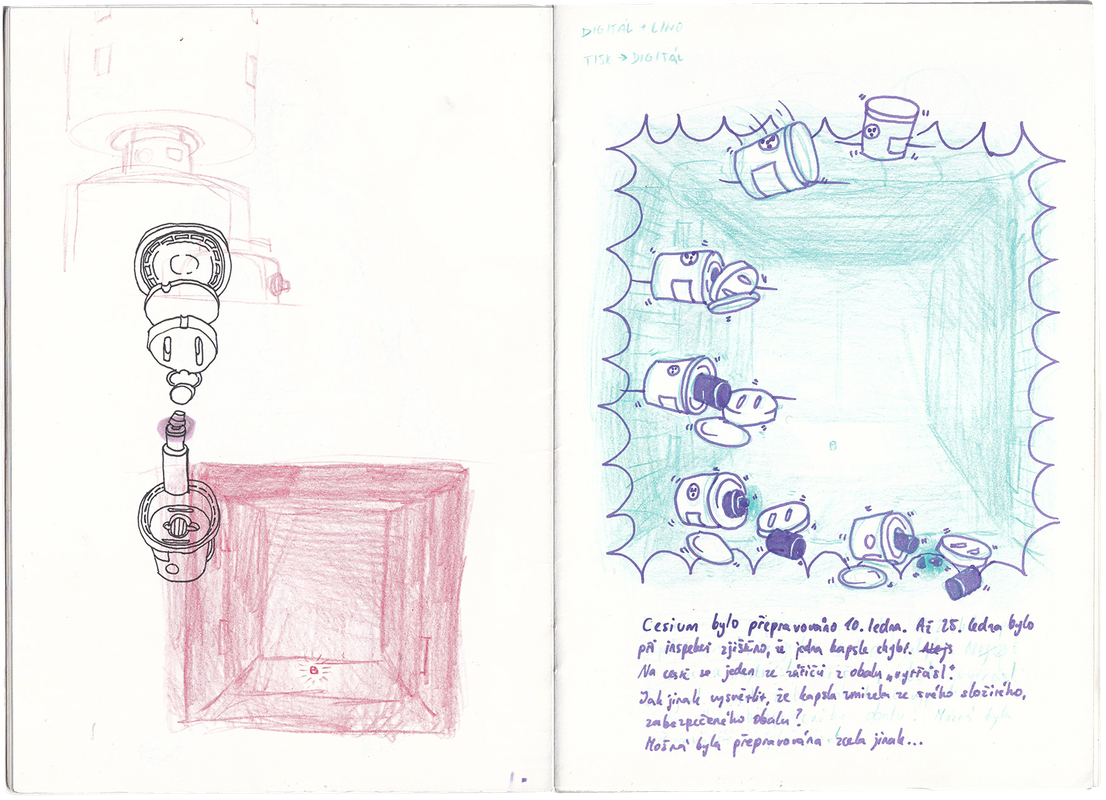 DIGITÁL + LINO
TISK → DIGITÁL
B
B
Cesium bylo přepravováno 10. ledna. Až 25. ledna bylo
při inspekci zjištěno, že jedna kapsle chybí.
Na cestě se jeden ze zářičů z obalu „vytřásl“.
Jak jinak vysvětlit, že kapsla zmizela ze svého složitého,
zabezpečeného obalu?
Možná byla přepravována zcela jinak...